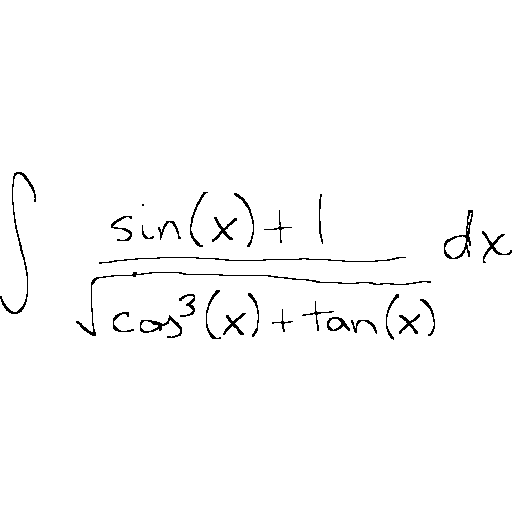 ∫ \frac{sin(x)+1}{\sqrt{cos^3(x)+tan(x)}} dx